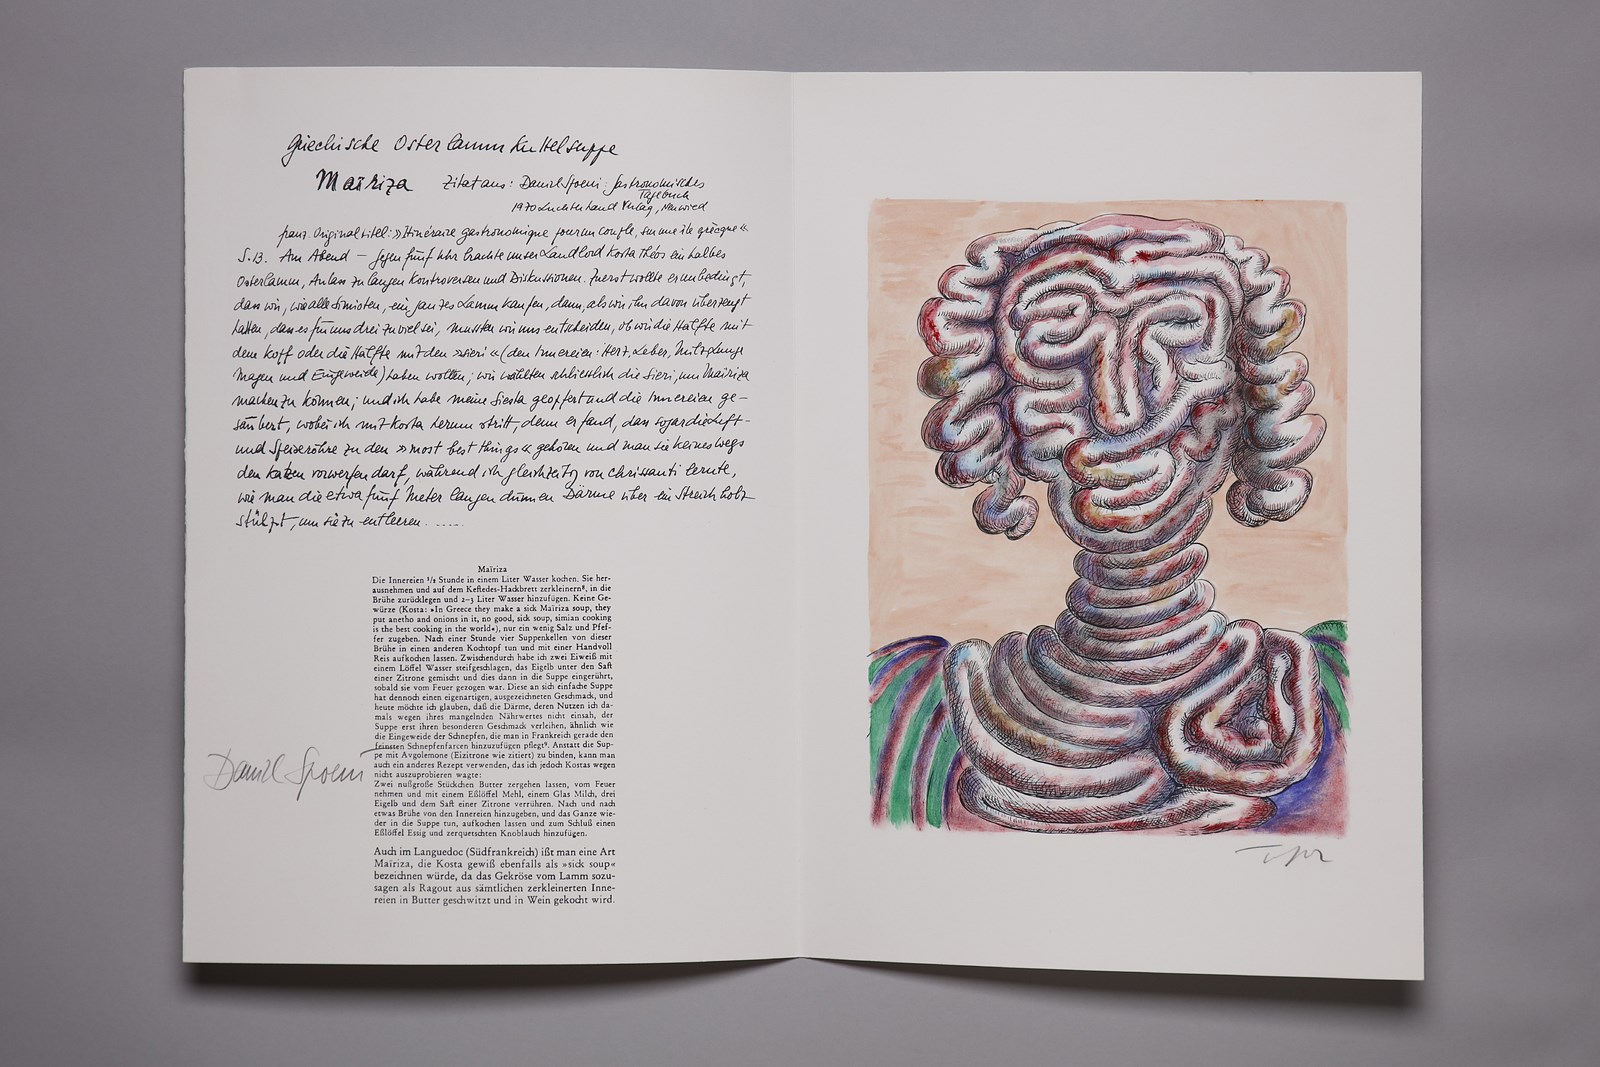 Griechische Osterlammkuttelsuppe
Maïriza Zitat aus: Daniel Spoerri: Gastronomisches
Tagebuch
1970 Luchterhand Verlag, Neuwied
franz. Originaltitel: »Itinéraire gastronomique pour un couple, sur une île grècque«
S. 13. Am Abend – gegen fünf Uhr brachte unser Landlord Kosta Théos ein halbes
Osterlamm, Anlass zu langen Kontroversen und Diskussionen. Zuerst wollte er unbedingt,
dass wir, wie alle Simioten, ein ganzes Lamm kaufen, dann, als wir ihn davon überzeugt
hatten, dass es für uns drei zu viel sei, mussten wir uns entscheiden, ob wir die Hälfte mit
dem Kopf oder die Hälfte mit den »sieri« (den Innereien: Herz, Leber, Milz, Lunge
Magen und Eingeweide) haben wollten; wir wählten schliesslich die Sieri, um Maïriza
machen zu können; und ich habe meine Siesta geopfert und die Innereien ge-
säubert, wobei ich mit Kosta herum stritt, denn er fand, dass sogar die Luft-
und Speiseröhre zu den »most best things« gehören und man sie keineswegs
den Katzen vorwerfen darf, während ich gleichzeitig von Chrissanti lernte,
wie man die etwa fünf Meter langen dünnen Därme über ein Streichholz
stülpt, um sie zu entleeren. .....
Maïriza
Die Innereien ½ Stunde in einem Liter Wasser kochen. Sie her-
ausnehmen und auf dem Keftedes-Hackbrett zerkleinern⁸, in die
Brühe zurücklegen und 2–3 Liter Wasser hinzufügen. Keine Ge-
würze (Kosta: »In Greece they make a sick Maïriza soup, they
put anetho and onions in it, no good, sick soup, simian cooking
is the best cooking in the world«), nur ein wenig Salz und Pfef-
fer zugeben. Nach einer Stunde vier Suppenkellen von dieser
Brühe in einen anderen Kochtopf tun und mit einer Handvoll
Reis aufkochen lassen. Zwischendurch habe ich zwei Eiweiß mit
einem Löffel Wasser steifgeschlagen, das Eigelb unter den Saft
einer Zitrone gemischt und dies dann in die Suppe eingerührt,
sobald sie vom Feuer gezogen war. Diese an sich einfache Suppe
hat dennoch einen eigenartigen, ausgezeichneten Geschmack, und
heute möchte ich glauben, daß die Därme, deren Nutzen ich da-
mals wegen ihres mangelnden Nährwertes nicht einsah, der
Suppe erst ihren besonderen Geschmack verleihen, ähnlich wie
die Eingeweide der Schnepfen, die man in Frankreich gerade den
feinsten Schnepfenfarcen hinzuzufügen pflegt⁹. Anstatt die Sup-
pe mit Avgolemone (Eizitrone wie zitiert) zu binden, kann man
auch ein anderes Rezept verwenden, das ich jedoch Kostas wegen
nicht auszuprobieren wagte:
Zwei nußgroße Stückchen Butter zergehen lassen, vom Feuer
nehmen und mit einem Eßlöffel Mehl, einem Glas Milch, drei
Eigelb und dem Saft einer Zitrone verrühren. Nach und nach
etwas Brühe von den Innereien hinzugeben, und das Ganze wie-
der in die Suppe tun, aufkochen lassen und zum Schluß einen
Eßlöffel Essig und zerquetschten Knoblauch hinzufügen.
Auch im Languedoc (Südfrankreich) ißt man eine Art
Maïriza, die Kosta gewiß ebenfalls als »sick soup«
bezeichnen würde, da das Gekröse vom Lamm sozu-
sagen als Ragout aus sämtlichen zerkleinerten Inne-
reien in Butter geschwitzt und in Wein gekocht wird.
Daniel Spoerri